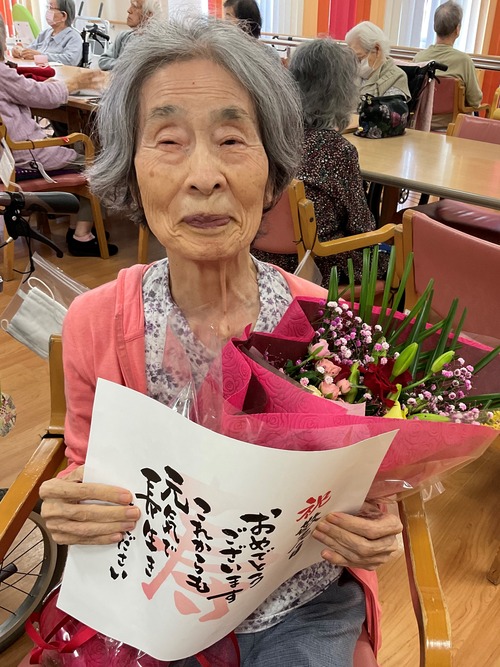 祝
おめでとう
ございます
これからも
元気で
長生き
ください
寿